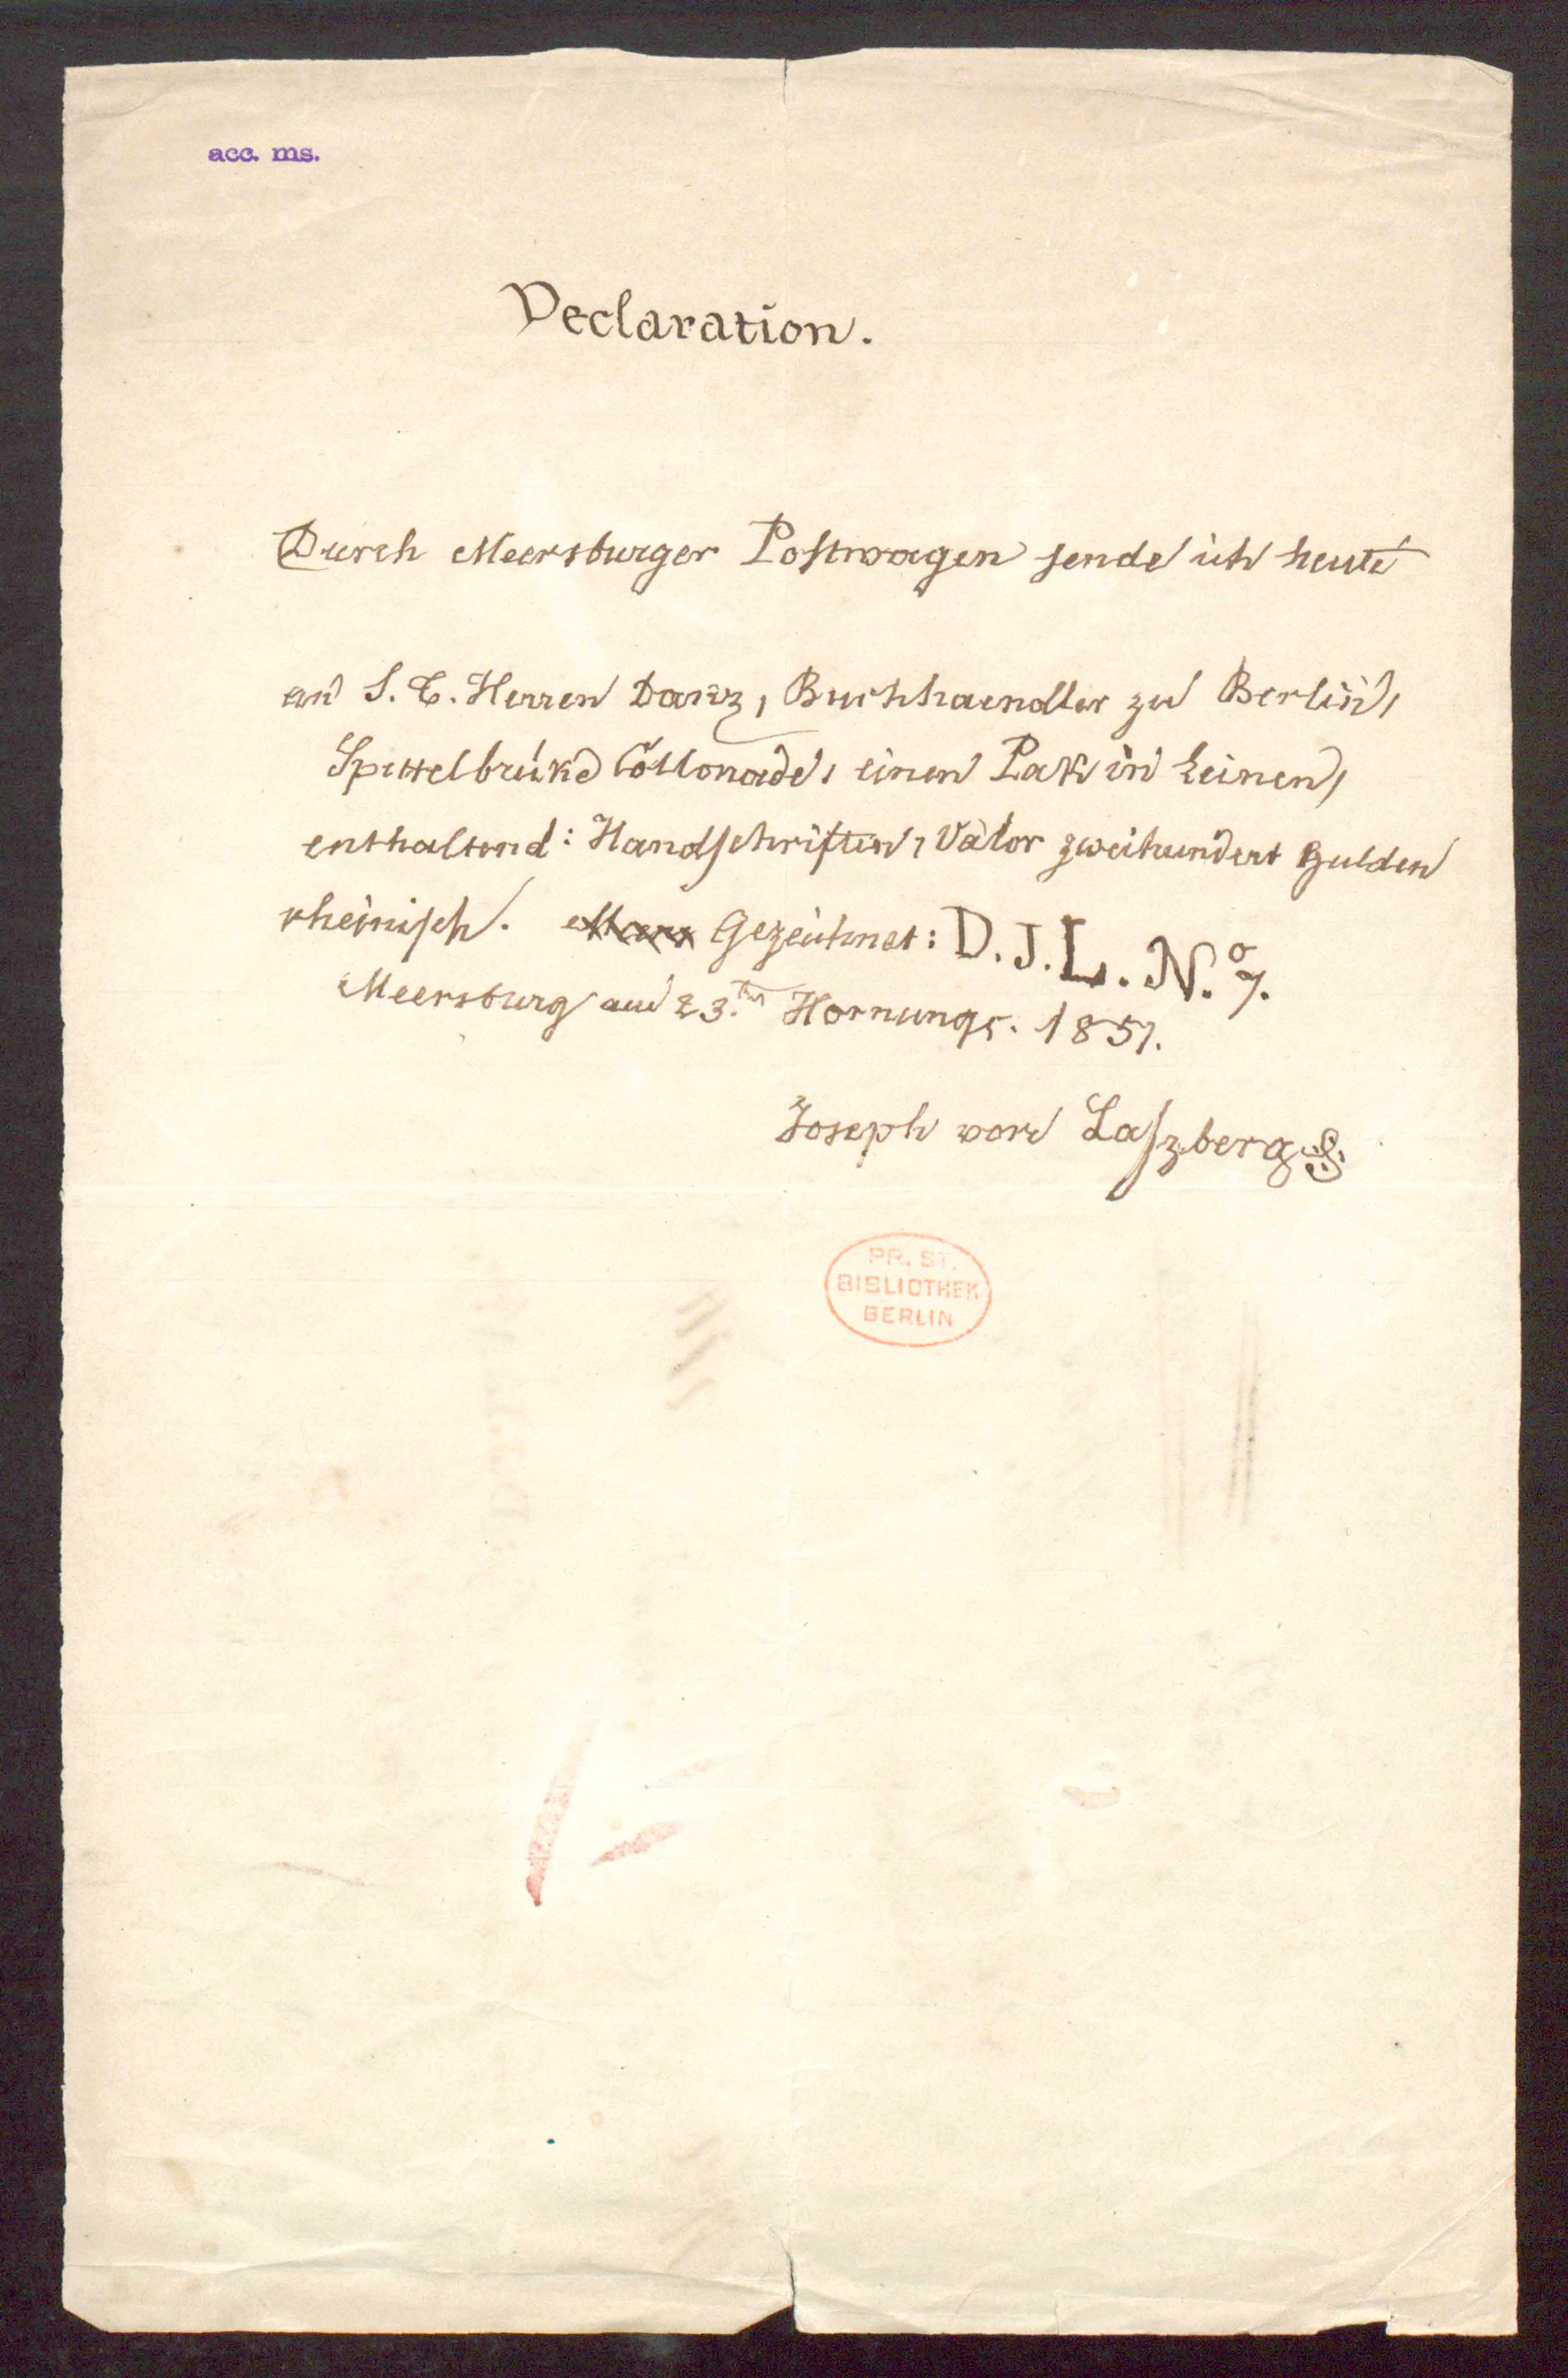 acc. ms.
Declaration.
Durch Meersburger Postwagen sende ich heute
an S. T. Herren Danz, Buchhaendler zu Berlin,
Spittelbrüke Collonade, einen Pak in Leinen,
enthaltend: Handschriften, Valor zweihundert Gulden
rheinisch. Gezeichnet: D. J. L. N.o 7.
Meersburg am 23.ten Hornungs. 1851.
Joseph von Laszberg
PR. ST.
BIBLIOTHEK
BERLIN